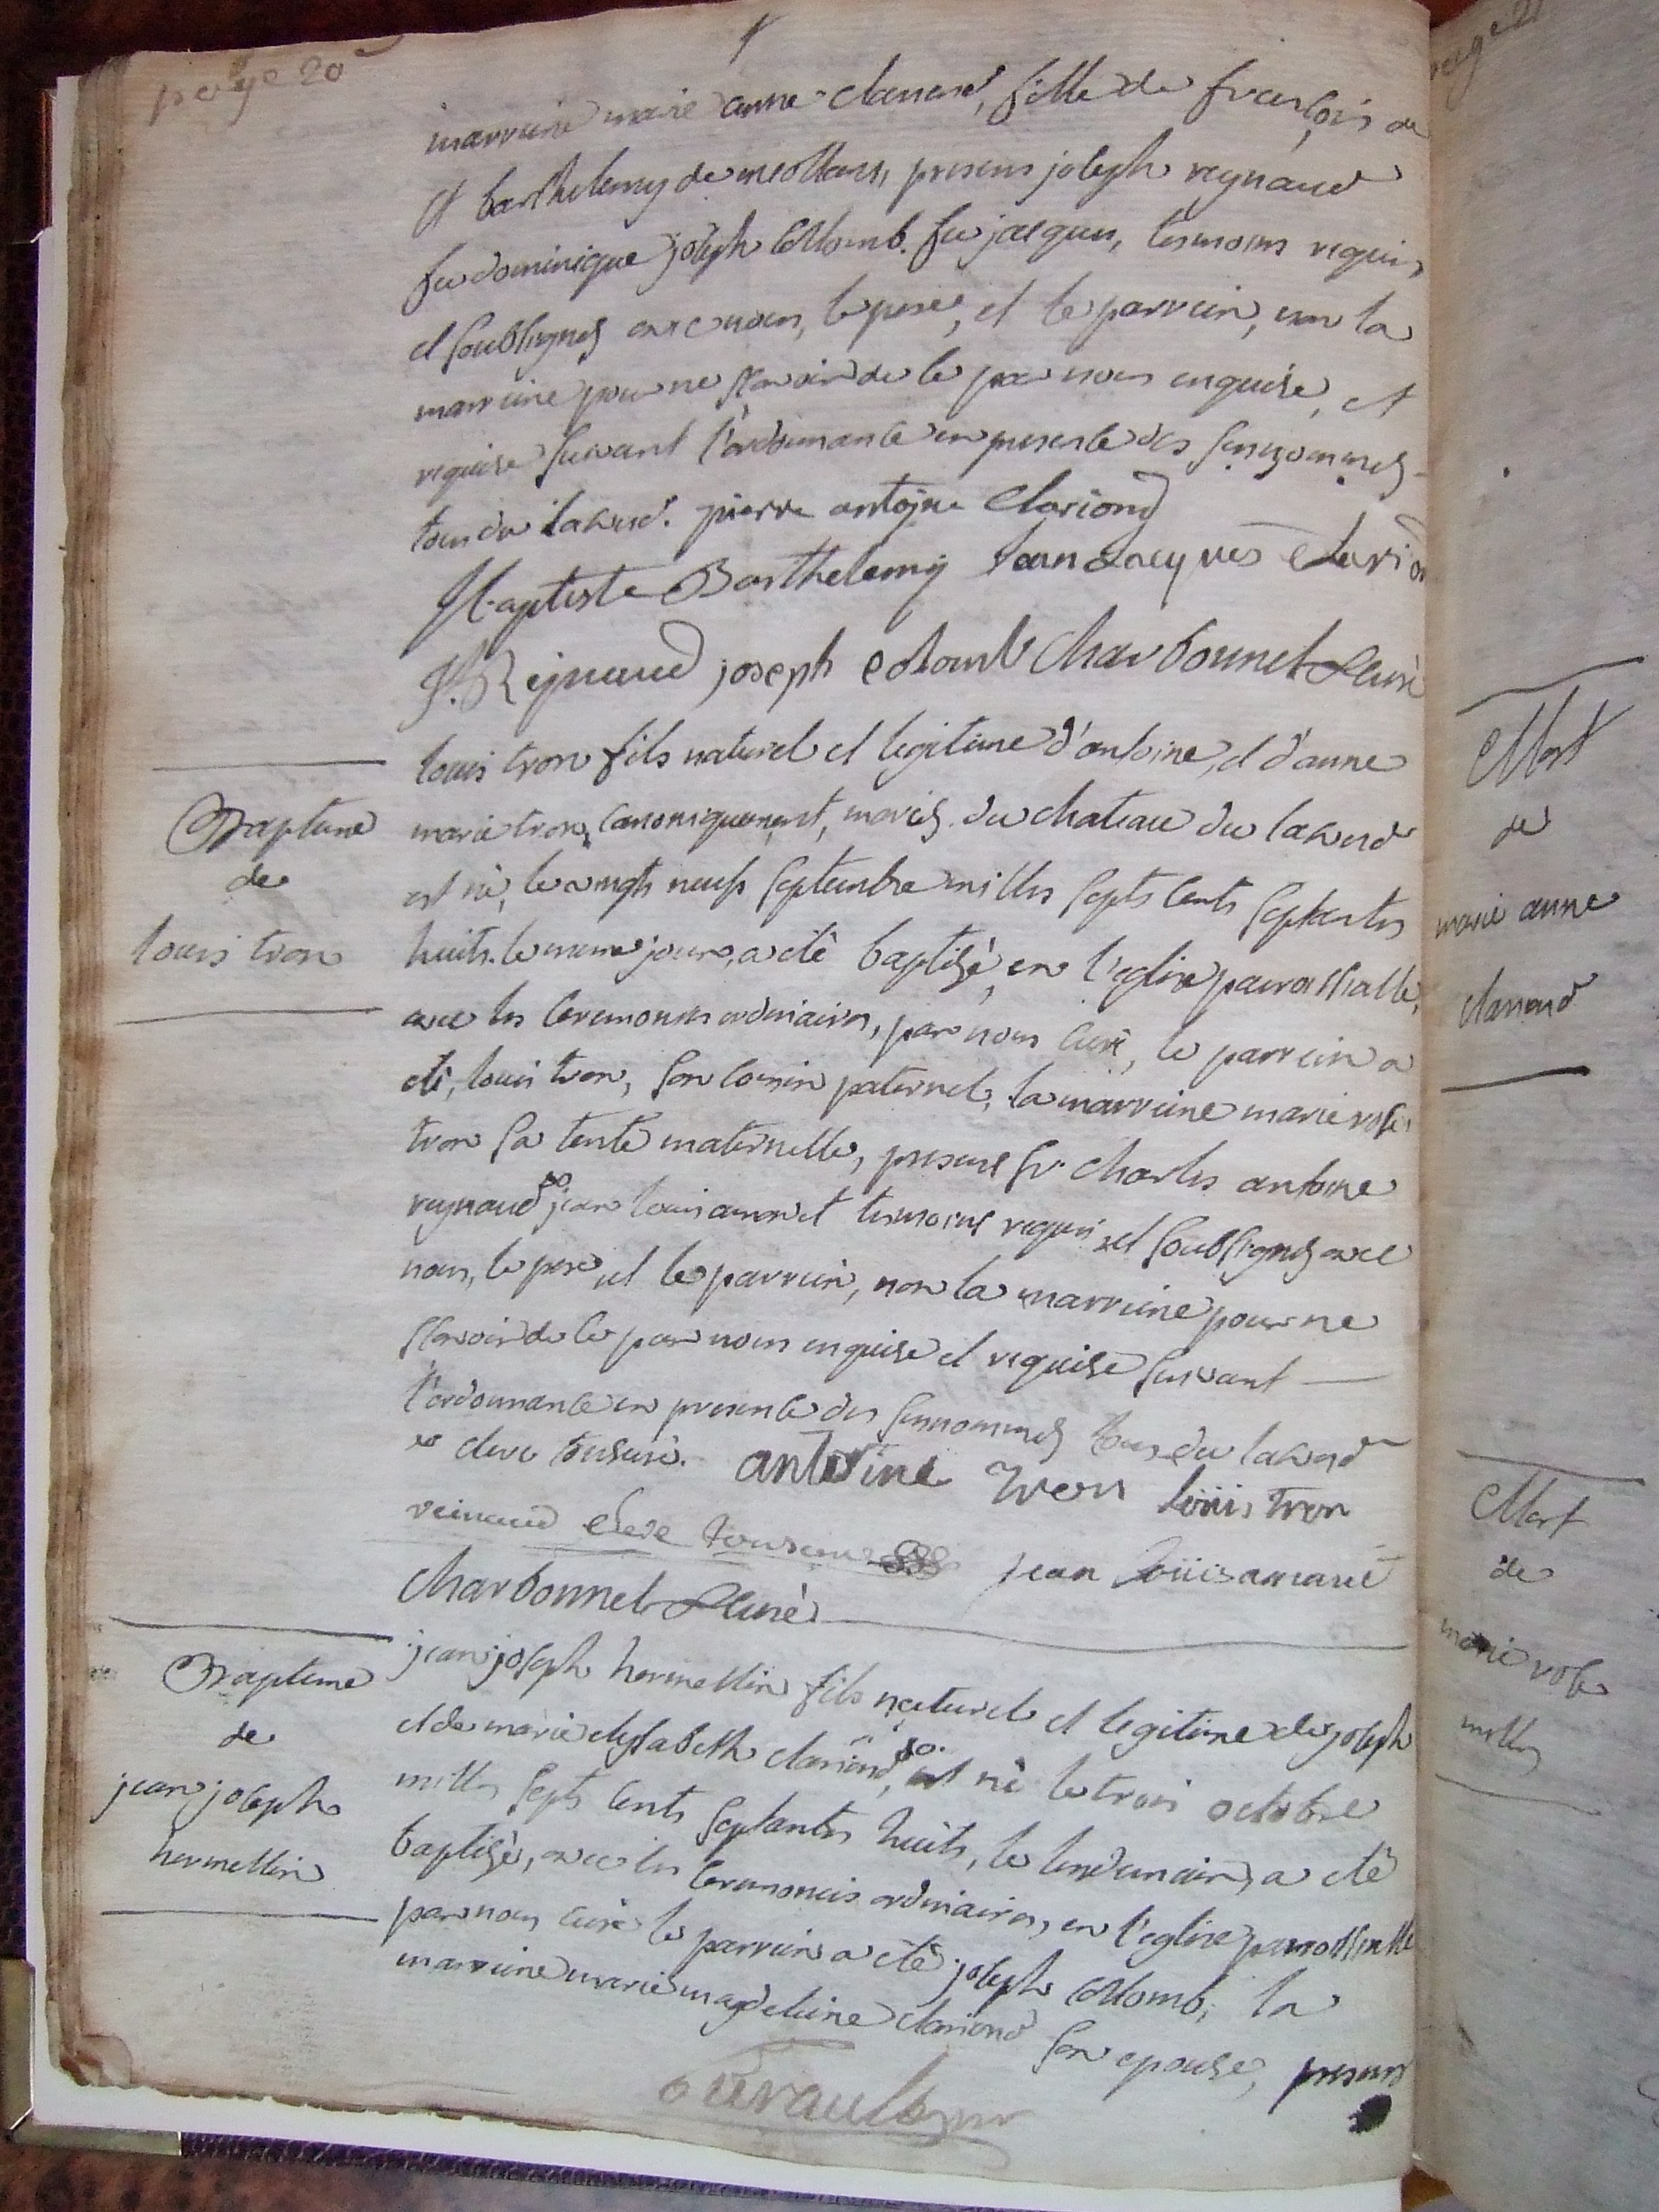 page 20
marreine marie anne clariond, fille de françois
et barthelemy de meollans, presens joseph reynaud
feu dominique joseph Collomb. feu jacques, tesmoins requis,
et soubsignes avec nous, le pere, et le parrein, non la
marreine pour ne sçavoir de ce par nous enquise, et
requise suivant l'ordonnance en presence des susnommes
tous du lauzet. pierre antoine clariond
J Baptiste Barthelemy Jean Jacques Clarion
J. Reynaud joseph colomb Charbonnet Curé
Bapteme
de
louis tron
louis tron fils naturel et legitime d'antoine, et d'anne
marie tron, canoniquement, mariés du chateau du lauzet
est né, le vingts neufs septembre milles septs cents septantes
huits. le meme jour, a été baptisé, en l'eglise parroissialle,
avec les ceremonies ordinaires, par nous curé, le parrein a
été, louis tron, son cousin paternel, la marreine marie rose
tron sa tente maternelle, presens sr. charles antoine
reynaud jean louis tesmoins requis et soubsignes avec
nous, le pere et le parrein, non la marreine pour ne
sçavoir de ce par nous enquise et requise suivant
l'ordonnance en presence des susnommes tous du lauzet
clerc tonsuré. antoine tron louis tron
reinaud clerc tonsuré jean louis
Charbonnet Curé
Bapteme
de
jean joseph
hermellin
jean joseph hermellin fils naturel et legitime de joseph
et de marie elysabeth clariond, est né le trois octobre
milles septs cents septantes huits, le lendemain, a été
baptisé, avec les ceremonies ordinaires, en l'eglise parroissialle
par nous curé le parrein a été joseph Collomb, la
marreine marie magdeleine clariond son epouse, presens
Mort
de
marie anne
clariond
Mort
de
marie rose